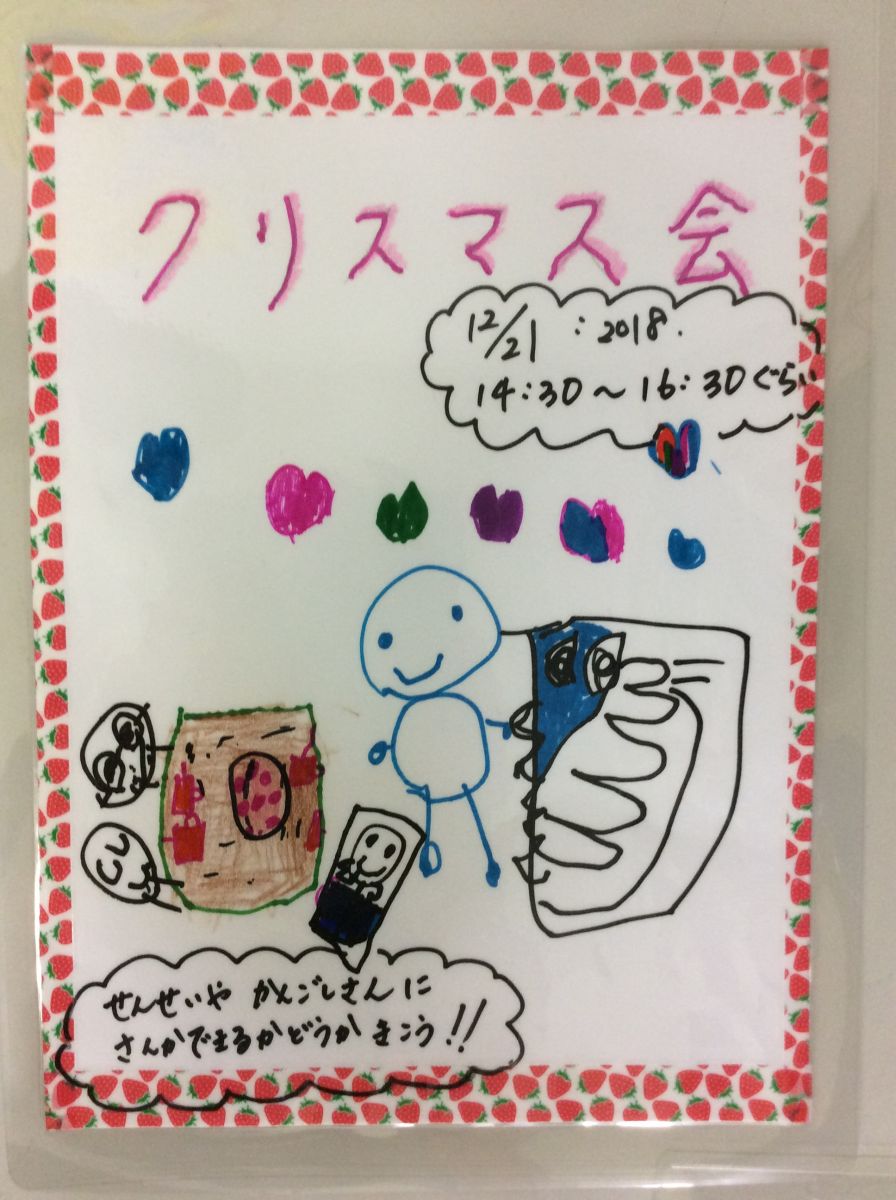 クリスマス会
12/21 : 2018.
14:30～16:30ぐらい
せんせいや かんごしさんに
さんかできるかどうか きこう!!